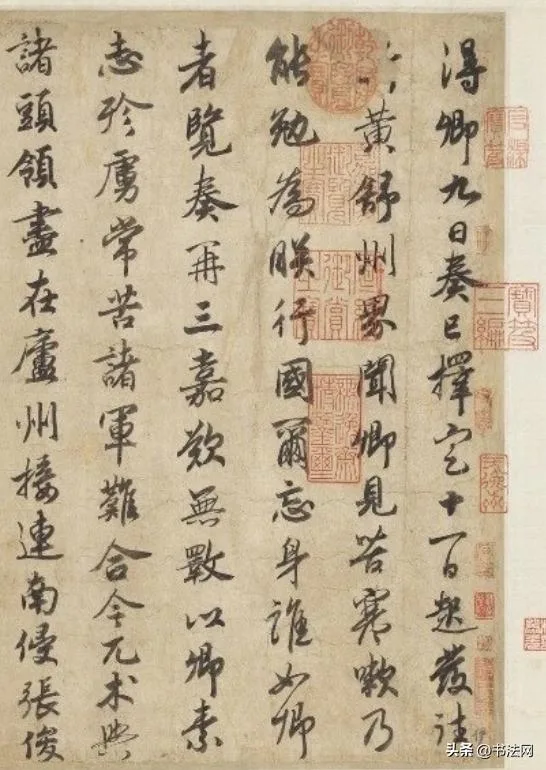 得卿九日奏已擇定十一日起發往
黃舒州界聞卿見苦寒嗽乃
能勉為朕行國爾忘身誰如卿
者覽奏再三嘉歎無斁以卿素
志殄虜常苦諸軍難合今兀朮與
諸頭領盡在廬州接連南侵張俊
御賞
寶笈
三編
头条 @书法网